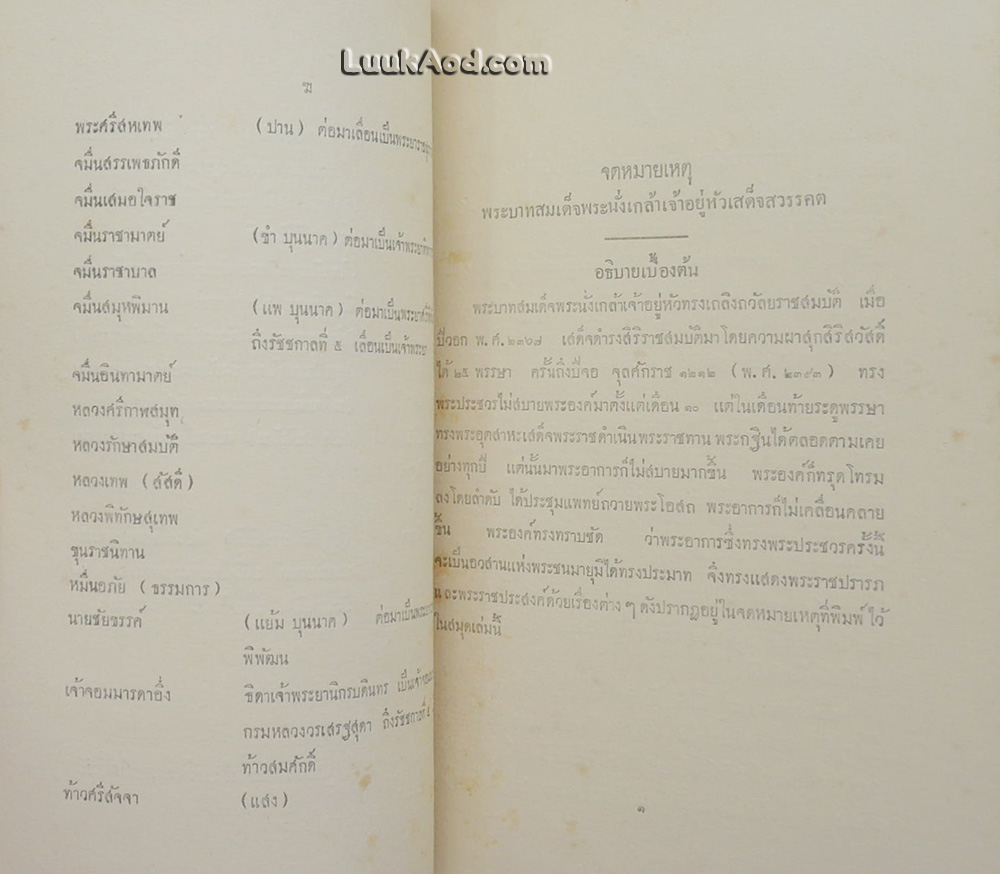 LuukAod.com
ฆ
พระศรีสหเทพ (ปาน) ต่อมาเลื่อนเป็นพระยาราช
จมื่นสรรเพธภักดี
จมื่นเสมอใจราช
จมื่นราชามาตย์ (ขำ บุนนาค) ต่อมาเป็นเจ้าพระยา
จมื่นราชาบาล
จมื่นสมุหพิมาน (แพ บุนนาค) ต่อมาเป็นพระยา
ถึงรัชชกาลที่ ๕ เลื่อนเป็นเจ้าพระยา
จมื่นอินทามาตย์
หลวงศรีกาพสมุท
หลวงรักษาสมบัติ
หลวงเทพ (สัสดี)
หลวงพิทักษสุเทพ
ขุนราชนิทาน
หมื่นอภัย (ธรรมการ)
นายชัยขรรค์ (แย้ม บุนนาค) ต่อมาเป็น
พิพัฒน
เจ้าจอมมารดาอึ่ง ธิดาเจ้าพระยานิกรบดินทร เป็น
กรมหลวงวรเสรฐสุดา ถึงรัชชกาลที่ ๕
ท้าวสมศักดิ์
ท้าวศรีสัจจา (แสง)
จดหมายเหตุ
พระบาทสมเด็จพระนั่งเกล้าเจ้าอยู่หัวเสด็จสวรรคต
อธิบายเบื้องต้น
พระบาทสมเด็จพระนั่งเกล้าเจ้าอยู่หัวทรงเถลิงถวัลยราชสมบัติ เมื่อ
ปีวอก พ.ศ. ๒๓๖๗ เสด็จดำรงสิริราชสมบัติมาโดยความผาสุกสิริสวัสดิ์
ได้ ๒๕ พรรษา ครั้นถึงปีจอ จุลศักราช ๑๒๑๒ (พ.ศ. ๒๓๙๓) ทรง
พระประชวรไม่สบายพระองค์มาตั้งแต่เดือน ๑๐ แต่ในเดือนท้ายระดูพรรษา
ทรงพระอุตสาหะเสด็จพระราชดำเนินพระราชทาน พระกฐินได้ตลอดตามเคย
อย่างทุกปี แต่นั้นมาพระอาการก็ไม่สบายมากขึ้น พระองค์ก็ทรุดโทรม
ลงโดยลำดับ ได้ประชุมแพทย์ถวายพระโอสถ พระอาการก็ไม่เคลื่อนคลาย
ขึ้น พระองค์ทรงทราบชัด ว่าพระอาการซึ่งทรงพระประชวรครั้งนี้
จะเป็นอวสานแห่งพระชนมายุมิได้ทรงประมาท จึงทรงแสดงพระราชปรารภ
และพระราชประสงค์ด้วยเรื่องต่าง ๆ ดังปรากฏอยู่ในจดหมายเหตุที่พิมพ์ไว้
ในสมุดเล่มนี้
๑